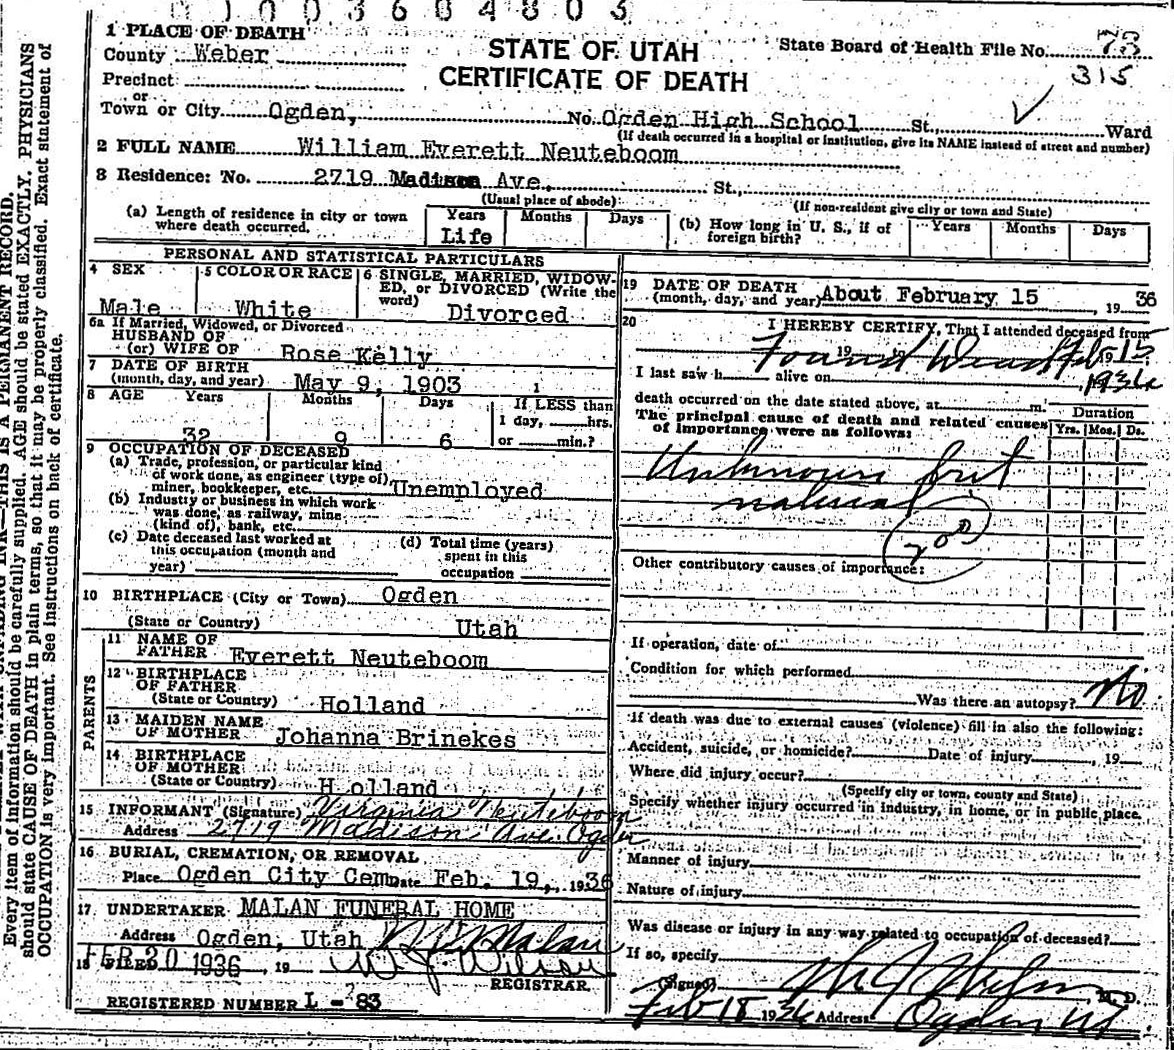 0003604803
1 PLACE OF DEATH
County Weber
Precinct
or
Town or City Ogden, No. Ogden High School St. Ward
STATE OF UTAH
CERTIFICATE OF DEATH
State Board of Health File No. 73
315
(If death occurred in a hospital or institution, give its NAME instead of street and number)
2 FULL NAME William Everett Neuteboom
3 Residence: No. 2719 Madison Ave. St.,
(Usual place of abode)
(If non-resident give city or town and State)
(a) Length of residence in city or town where death occurred. Years Months Days
Life
(b) How long in U. S., if of foreign birth? Years Months Days
PERSONAL AND STATISTICAL PARTICULARS
4 SEX
Male
5 COLOR OR RACE
White
6 SINGLE, MARRIED, WIDOW-
ED, or DIVORCED (Write the
word)
Divorced
6a If Married, Widowed, or Divorced
HUSBAND OF
(or) WIFE OF Rose Kelly
7 DATE OF BIRTH
(month, day, and year) May 9, 1903
8 AGE Years Months Days
32 9 6
If LESS than
1 day, hrs.
or min.?
9 OCCUPATION OF DECEASED
(a) Trade, profession, or particular kind
of work done, as engineer (type of)
miner, bookkeeper, etc. Unemployed
(b) Industry or business in which work
was done, as railway, mine
(kind of), bank, etc.
(c) Date deceased last worked at
this occupation (month and
year)
(d) Total time (years)
spent in this
occupation
10 BIRTHPLACE (City or Town) Ogden
(State or Country) Utah
PARENTS
11 NAME OF
FATHER Everett Neuteboom
12 BIRTHPLACE
OF FATHER
(State or Country) Holland
13 MAIDEN NAME
OF MOTHER Johanna Brinekes
14 BIRTHPLACE
OF MOTHER
(State or Country) Holland
15 INFORMANT (Signature) Virginia Neuteboom
Address 2719 Madison Ave. Ogden
16 BURIAL, CREMATION, OR REMOVAL
Place Ogden City Cem Date Feb. 19, 1936
17 UNDERTAKER MALAN FUNERAL HOME
Address Ogden, Utah Malan
18 FILED FEB 20 1936, 19 W J Wilson
REGISTRAR
REGISTERED NUMBER L - 83
19 DATE OF DEATH
(month, day, and year) About February 15, 1936
20 I HEREBY CERTIFY, That I attended deceased from
Found Dead Feb 15
1936
I last saw h alive on
death occurred on the date stated above, at m.
The principal cause of death and related causes
of importance were as follows:
Duration
Yrs. Mos. Ds.
Unknown but
natural
200
Other contributory causes of importance:
If operation, date of
Condition for which performed
Was there an autopsy? No
If death was due to external causes (violence) fill in also the following:
Accident, suicide, or homicide? Date of injury, 19
Where did injury occur?
(Specify city or town, county and State)
Specify whether injury occurred in industry, in home, or in public place.
Manner of injury
Nature of injury
Was disease or injury in any way related to occupation of deceased?
If so, specify
(Signed) W J Wilson M. D.
Feb 18 1936 Address Ogden Ut
Every item of information should be carefully supplied. AGE should be stated EXACTLY. PHYSICIANS
should state CAUSE OF DEATH in plain terms, so that it may be properly classified. Exact statement of
OCCUPATION is very important. See instructions on back of certificate.
INK—THIS IS A PERMANENT RECORD.